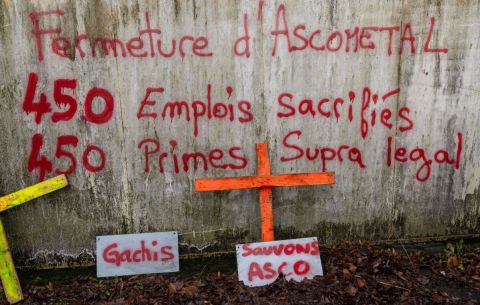 Fermeture d'ASCOMETAL
450 Emplois sacrifiés
450 Primes Supra legal
Gachis
Sauvons
ASCO